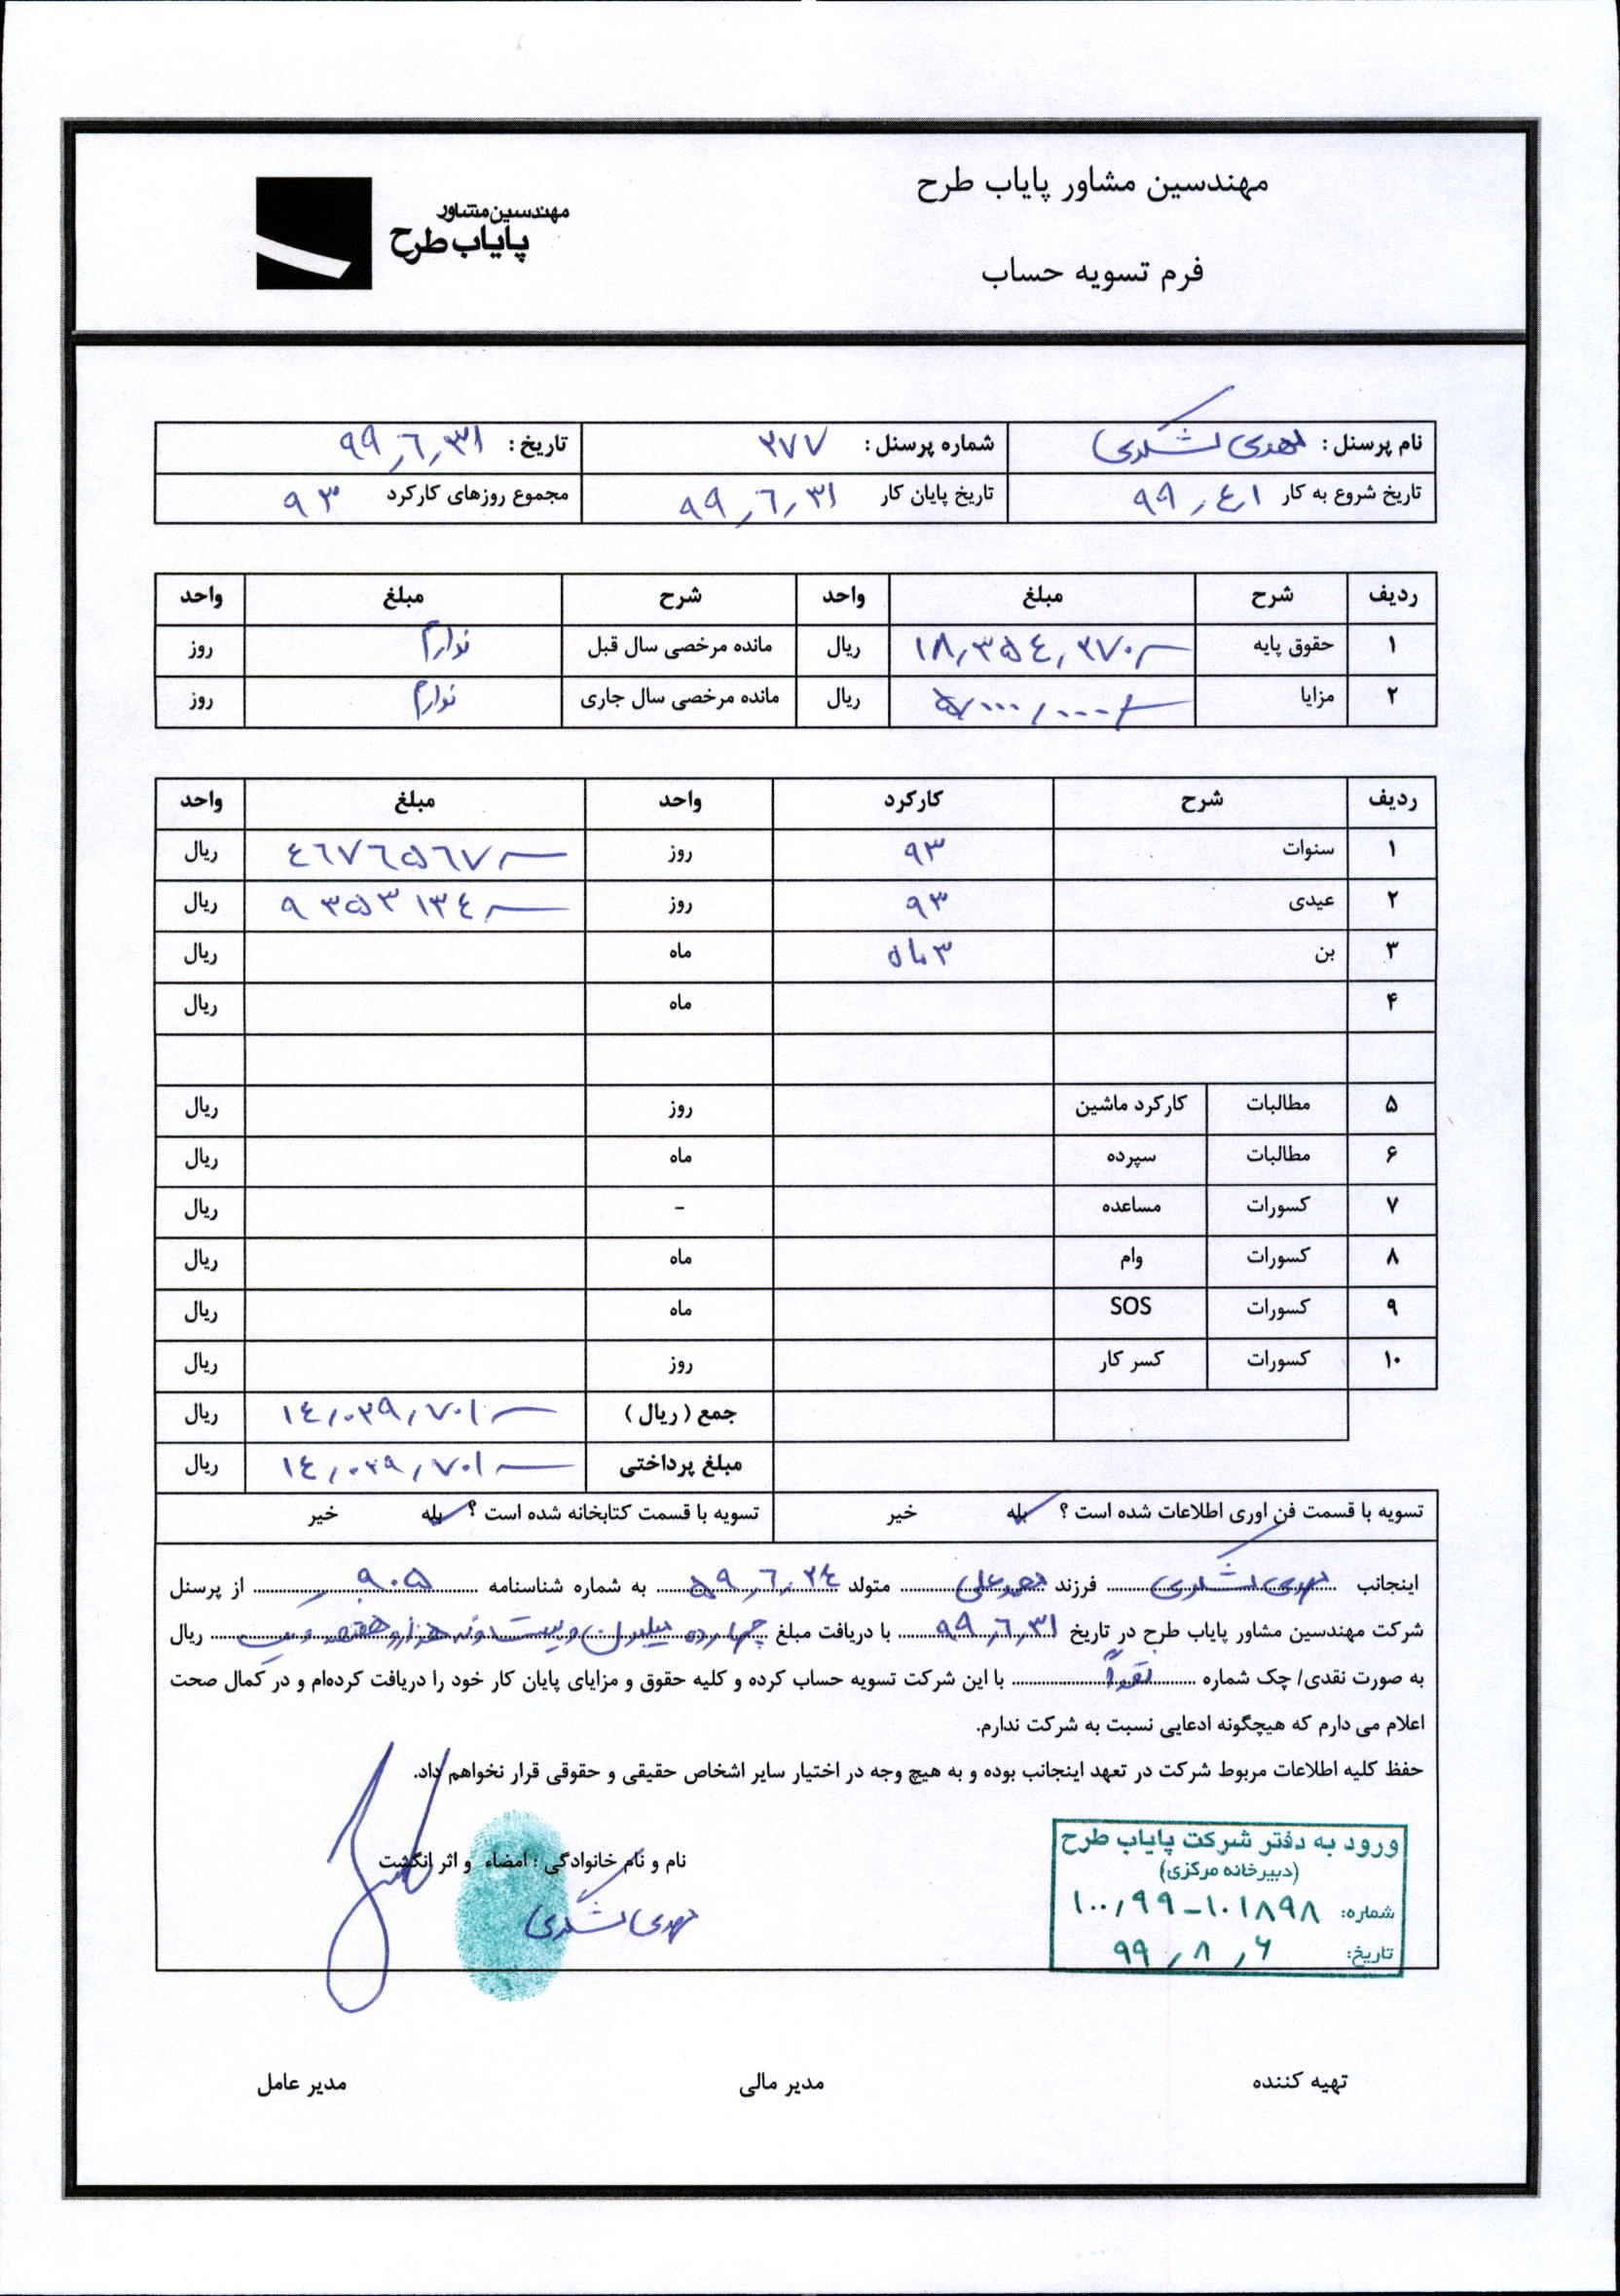 مهندسین مشاور پایاب طرح
مهندسین مشاور
پایاب طرح
فرم تسویه حساب
نام پرسنل : مهدی لشکری شماره پرسنل : ۲۷۷ تاریخ : ۹۹٫۶٫۳۱
تاریخ شروع به کار ۹۹٫۴٫۱ تاریخ پایان کار ۹۹٫۶٫۳۱ مجموع روزهای کارکرد ۹۳
ردیف شرح مبلغ واحد شرح مبلغ واحد
۱ حقوق پایه ۱۸٫۳۵۴٫۲۷۰٫- ریال مانده مرخصی سال قبل ندارم روز
۲ مزایا ۵٫۰۰۰٫۰۰۰٫- ریال مانده مرخصی سال جاری ندارم روز
ردیف شرح کارکرد واحد مبلغ واحد
۱ سنوات ۹۳ روز ۴۶۷۶۵۶۷- ریال
۲ عیدی ۹۳ روز ۹۳۵۳۱۳۴- ریال
۳ بن ۳ ماه ماه ریال
۴ ماه ریال
۵ مطالبات کارکرد ماشین روز ریال
۶ مطالبات سپرده ماه ریال
۷ کسورات مساعده - ریال
۸ کسورات وام ماه ریال
۹ کسورات SOS ماه ریال
۱۰ کسورات کسر کار روز ریال
جمع ( ریال ) ۱۴٫۰۲۹٫۷۰۱- ریال
مبلغ پرداختی ۱۴٫۰۲۹٫۷۰۱- ریال
تسویه با قسمت فن اوری اطلاعات شده است ؟ بله خیر تسویه با قسمت کتابخانه شده است ؟ بله خیر
اینجانب مهدی لشکری فرزند محمدعلی متولد ۵۹٫۶٫۲۴ به شماره شناسنامه ۹۰۵ از پرسنل
شرکت مهندسین مشاور پایاب طرح در تاریخ ۹۹٫۶٫۳۱ با دریافت مبلغ چهارده میلیون و بیست و نه هزار و هفتصد و یک ریال
به صورت نقدی/ چک شماره نقداً با این شرکت تسویه حساب کرده و کلیه حقوق و مزایای پایان کار خود را دریافت کرده‌ام و در کمال صحت
اعلام می دارم که هیچگونه ادعایی نسبت به شرکت ندارم.
حفظ کلیه اطلاعات مربوط شرکت در تعهد اینجانب بوده و به هیچ وجه در اختیار سایر اشخاص حقیقی و حقوقی قرار نخواهم داد.
ورود به دفتر شرکت پایاب طرح
(دبیرخانه مرکزی)
شماره: ۱۰۰٫۹۹-۱۰۱۸۹۸
تاریخ: ۹۹٫۸٫۶
نام و نام خانوادگی : امضاء و اثر انگشت
مهدی لشکری
تهیه کننده مدیر مالی مدیر عامل